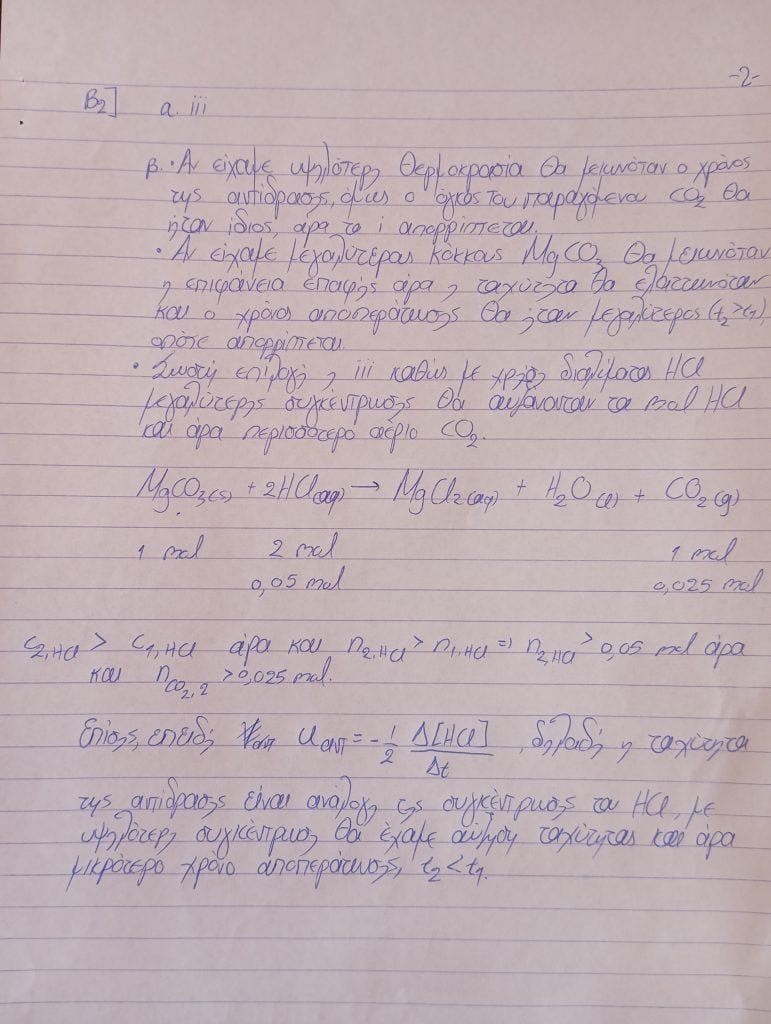 -2-
Β2] α. iii
β. • Αν είχαμε υψηλότερη θερμοκρασία θα μειωνόταν ο χρόνος
της αντίδρασης, όμως ο όγκος του παραγόμενου CO2 θα
ήταν ίδιος, άρα το i απορρίπτεται.
• Αν είχαμε μεγαλύτερους κόκκους MgCO3 θα μειωνόταν
η επιφάνεια επαφής άρα η ταχύτητα θα ελαττωνόταν
και ο χρόνος αποπεράτωσης θα ήταν μεγαλύτερος (t2>t1),
οπότε απορρίπτεται.
• Σωστή επιλογή η iii καθώς με χρήση διαλύματος HCl
μεγαλύτερης συγκέντρωσης θα αυξάνονταν τα mol HCl
και άρα περισσότερο αέριο CO2.
MgCO3(s) + 2HCl(aq) → MgCl2(aq) + H2O(l) + CO2(g)
1 mol 2 mol 1 mol
0,05 mol 0,025 mol
c2,HCl > c1,HCl άρα και n2,HCl > n1,HCl => n2,HCl > 0,05 mol άρα
και nCO2,2 > 0,025 mol.
Επίσης, επειδή υαντ = - 1/2 Δ[HCl]/Δt, δηλαδή η ταχύτητα
της αντίδρασης είναι ανάλογη της συγκέντρωσης του HCl, με
υψηλότερη συγκέντρωση θα έχαμε αύξηση ταχύτητας και άρα
μικρότερο χρόνο αποπεράτωσης, t2<t1.